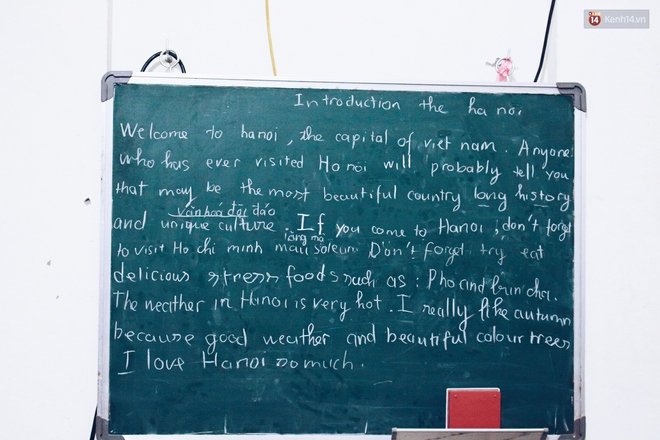 14
Kenh14.vn
Introduction the ha noi
Welcome to hanoi, the capital of viet nam. Anyone
who has ever visited Ha noi will probably tell you
that may be the most beautiful country long history
văn hoá độc đáo
and unique culture. If you come to Hanoi, don't forget
lăng mộ
to visit Ho chi minh mausoleum Don't forget try eat
delicious stress foods such as: Pho and bun cha.
The neather in Hanoi is very hot. I really like autumn
because good weather and beautiful colour trees
I love Hanoi so much.